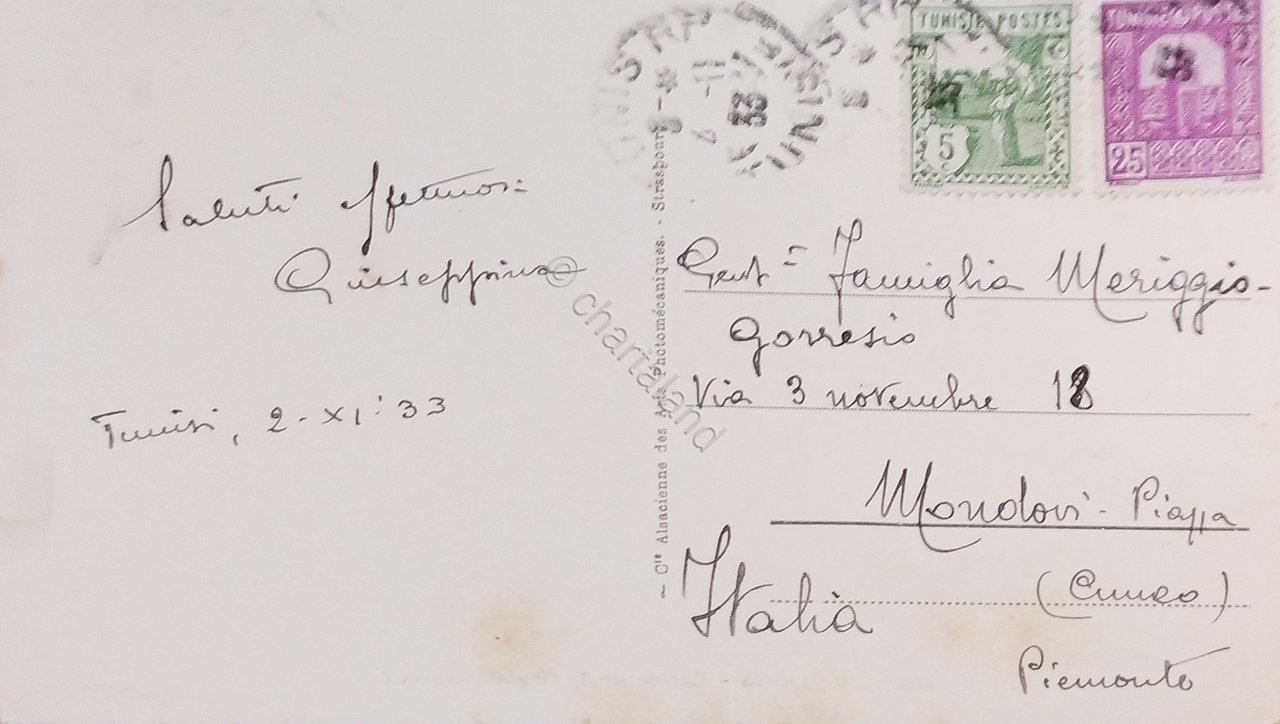 Saluti affettuosi
Giuseppina
Tunisi, 2-XI-'33
TUNIS R.P.
TUNISIE
11
33
TUNISIE POSTES
5
TUNISIE POSTES
25
Gent= Famiglia Meriggio-
Gorresio
Via 3 novembre 18
Mondovi - Piazza
(Cuneo)
Italia
Piemonte
— Cie Alsacienne des Arts Photomécaniques. - Strasbourg
© chartaland